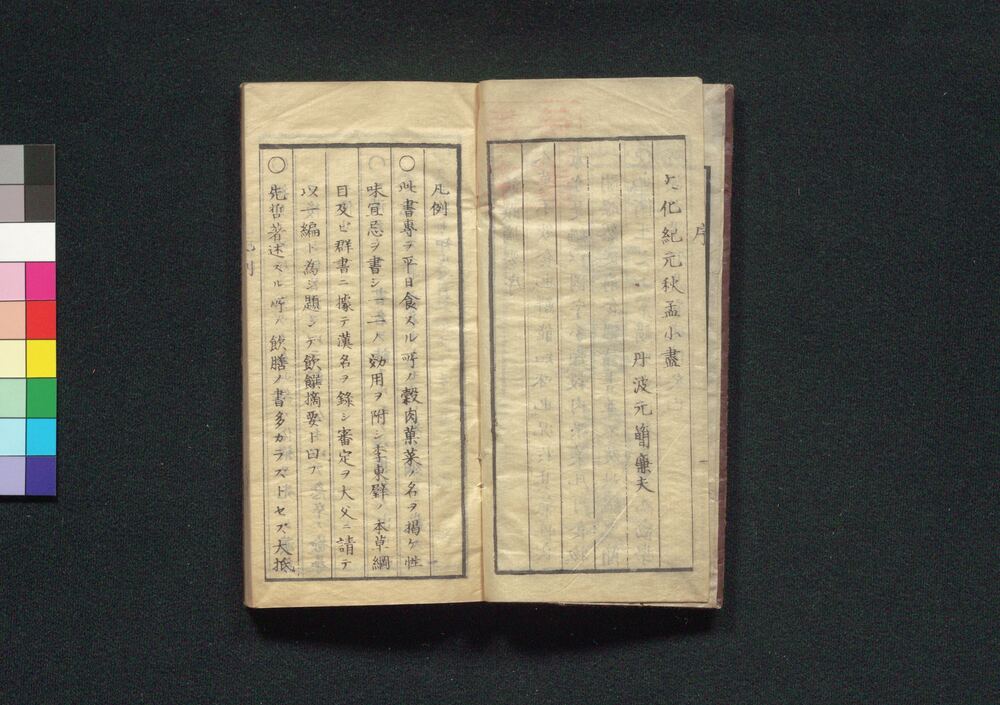 序
文化紀元秋孟小盡
丹波元簡廉夫
凡例
○此書專ラ平日食スル所ノ穀肉菓菜ノ名ヲ揭ケ性
味宜忌ヲ書シ一二ノ効用ヲ附シ李東璧ノ本草綱
目及ビ群書ニ據テ漢名ヲ錄シ審定ヲ大父ニ請テ
以テ一編ト為シ題シテ飲饌摘要ト曰フ
○先哲著述スル所ノ飲膳ノ書多カラストセズ大抵
凡例